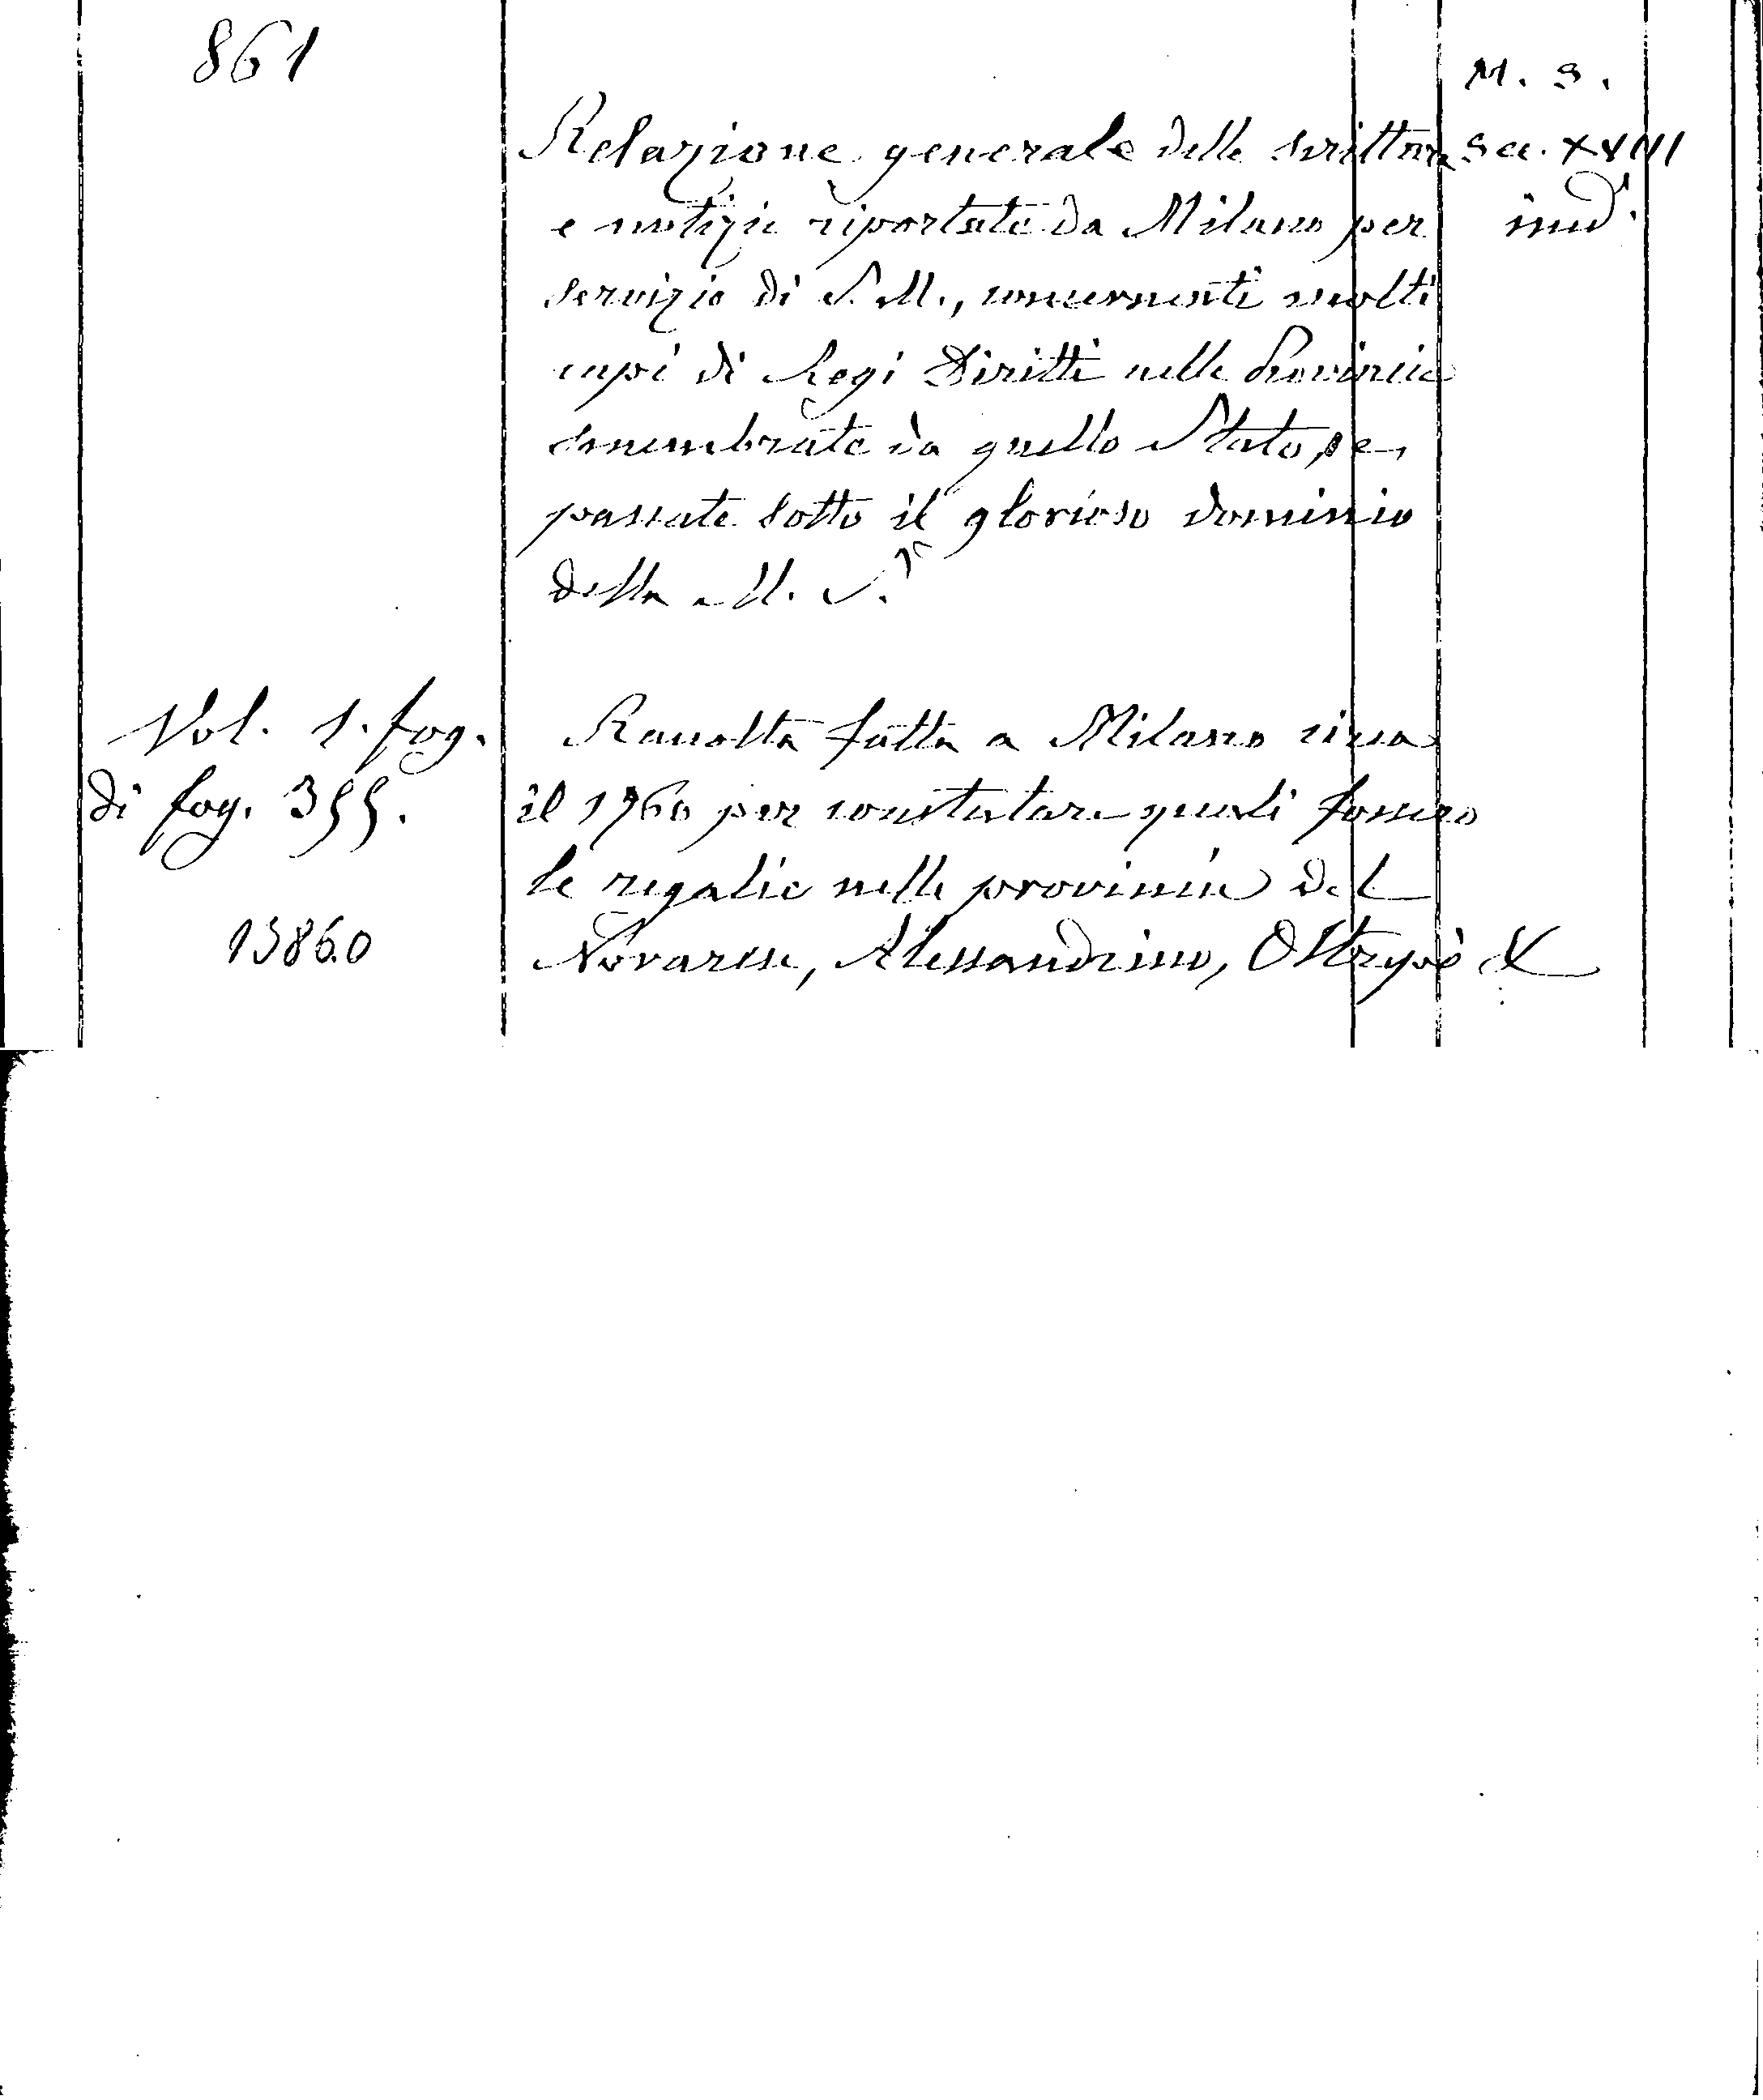 861
M. S.
Relazione generale delle scritture
Sec. XVIII
e notizie riportate da Milano per
ined.
servizio di S. M., concernenti molti
capi di Regi Diritti nelle Provincie
smembrate da quello Stato, e
passate sotto il glorioso dominio
della M. S.
Vol. 1. fog.
di fog. 355.
13860
Raccolta fatta a Milano circa
il 1760 per constatare quali fossero
le regalie nelle provincie del
Novarese, Alessandrino, Oltrepò &